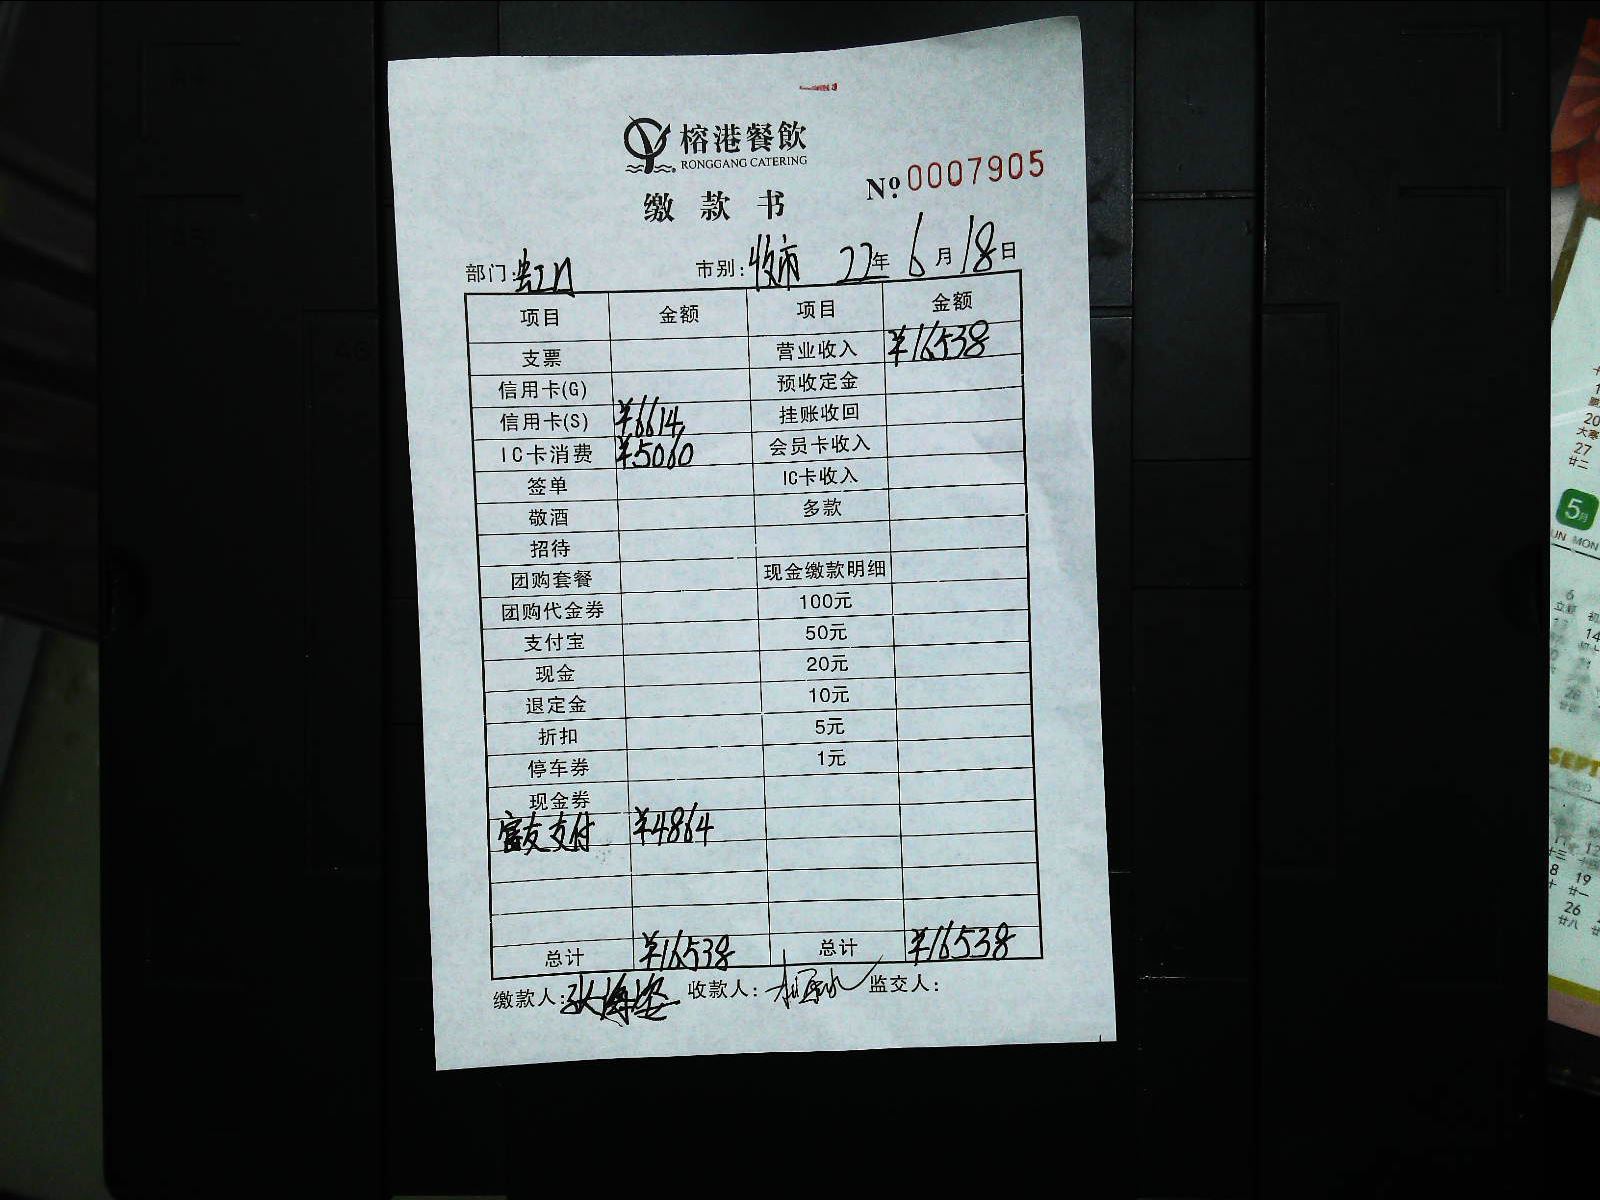 榕港餐飲
RONGGANG CATERING
缴款书
№ 0007905
部门:虹门 市别:收市 22年6月18日
项目 金额 项目 金额
支票 营业收入 ¥16538
信用卡(G) 预收定金
信用卡(S) ¥6614 挂账收回
IC卡消费 ¥5060 会员卡收入
签单 IC卡收入
敬酒 多款
招待
团购套餐 现金缴款明细
团购代金券 100元
支付宝 50元
现金 20元
退定金 10元
折扣 5元
停车券 1元
现金券
富友支付 ¥4864
总计 ¥16538 总计 ¥16538
缴款人: 收款人: 监交人:
5月
SEPT